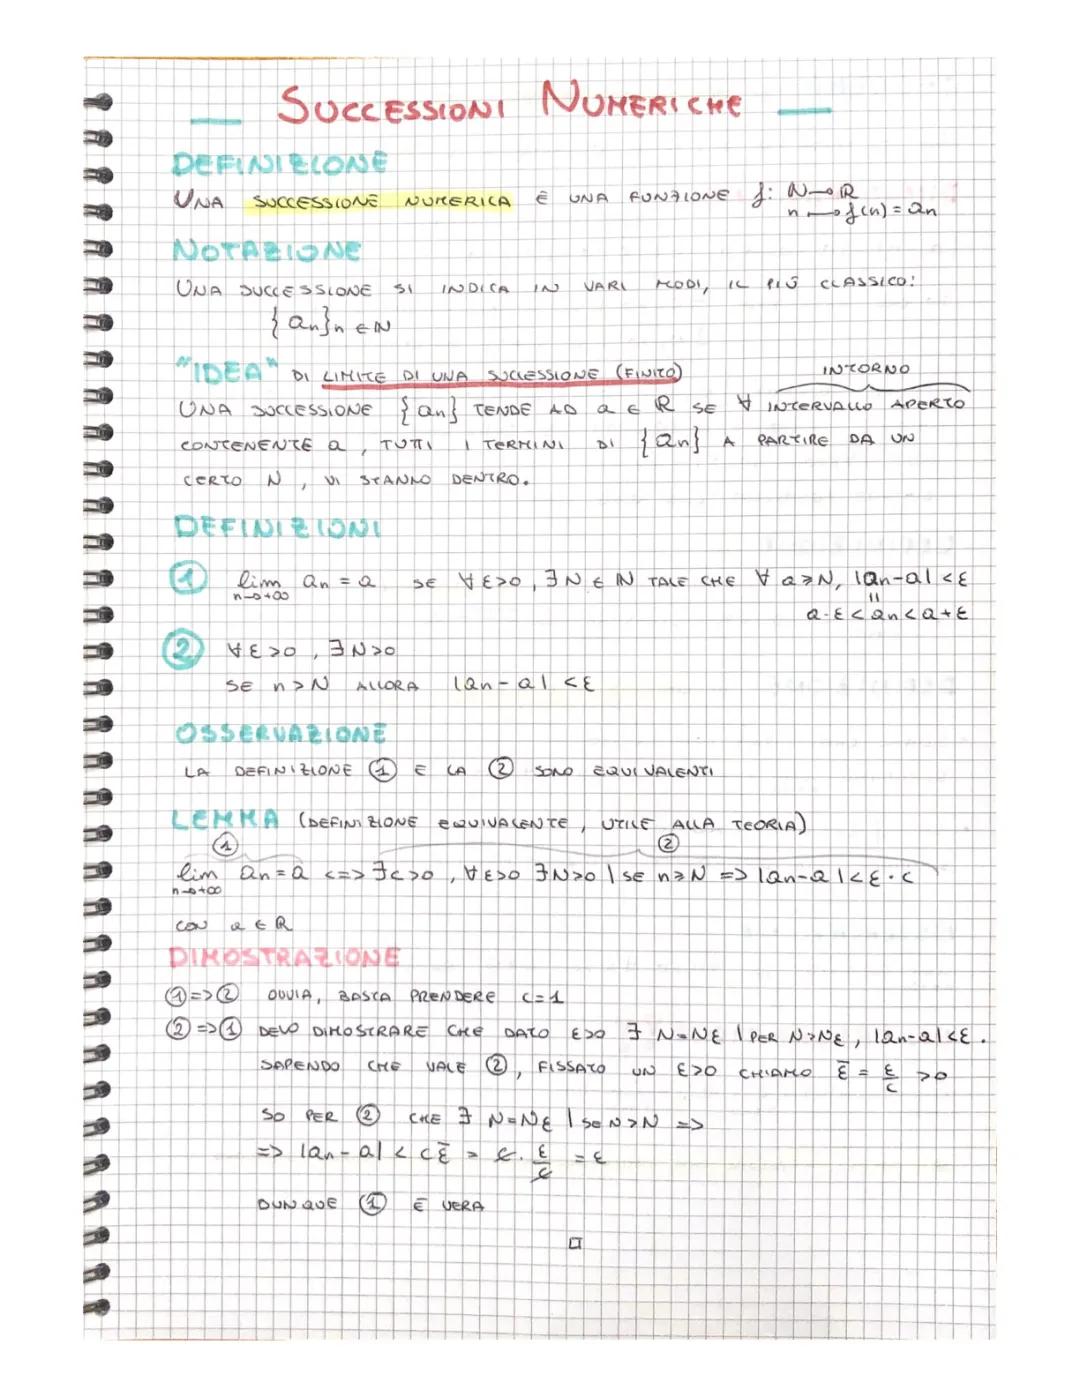 SUCCESSIONI NUMERICHE
DEFINIZIONE
UNA SUCCESSIONE NUMERICA È UNA FUNZIONE f: N→R
n→f(n) = an
NOTAZIONE
UNA SUCCESSIONE SI INDICA IN VARI MODI, IL PIÙ CLASSICO:
{an}n∈N
"IDEA" DI LIMITE DI UNA SUCCESSIONE (FINITO)
INTORNO
UNA SUCCESSIONE {an} TENDE AD a ∈ R SE ∀ INTERVALLO APERTO
CONTENENTE a, TUTTI I TERMINI DI {an} A PARTIRE DA UN
CERTO N, VI STANNO DENTRO.
DEFINIZIONI
① lim an = a SE ∀ε>0, ∃N∈N TALE CHE ∀ a≥N, |an-a|<ε
n→+∞
"
a-ε<an<a+ε
② ∀ε>0, ∃N>0
SE n>N ALLORA |an-a|<ε
OSSERVAZIONE
LA DEFINIZIONE ① E LA ② SONO EQUIVALENTI
LEMMA (DEFINIZIONE EQUIVALENTE, UTILE ALLA TEORIA)
① ②
lim an=a <=> ∃c>0, ∀ε>0 ∃N>0 | SE n≥N => |an-a|<ε·c
n→+∞
CON a∈R
DIMOSTRAZIONE
①=>② OVVIA, BASTA PRENDERE C=1
②=>① DEVO DIMOSTRARE CHE DATO ε>0 ∃ N=Nε | PER N>Nε, |an-a|<ε.
SAPENDO CHE VALE ②, FISSATO UN ε>0 CHIAMO ε̄ = ε/c >0
SO PER ② CHE ∃ N=Nε | SE N>N =>
=> |an-a| < cε̄ = c·ε/c = ε
DUNQUE ① È VERA
□